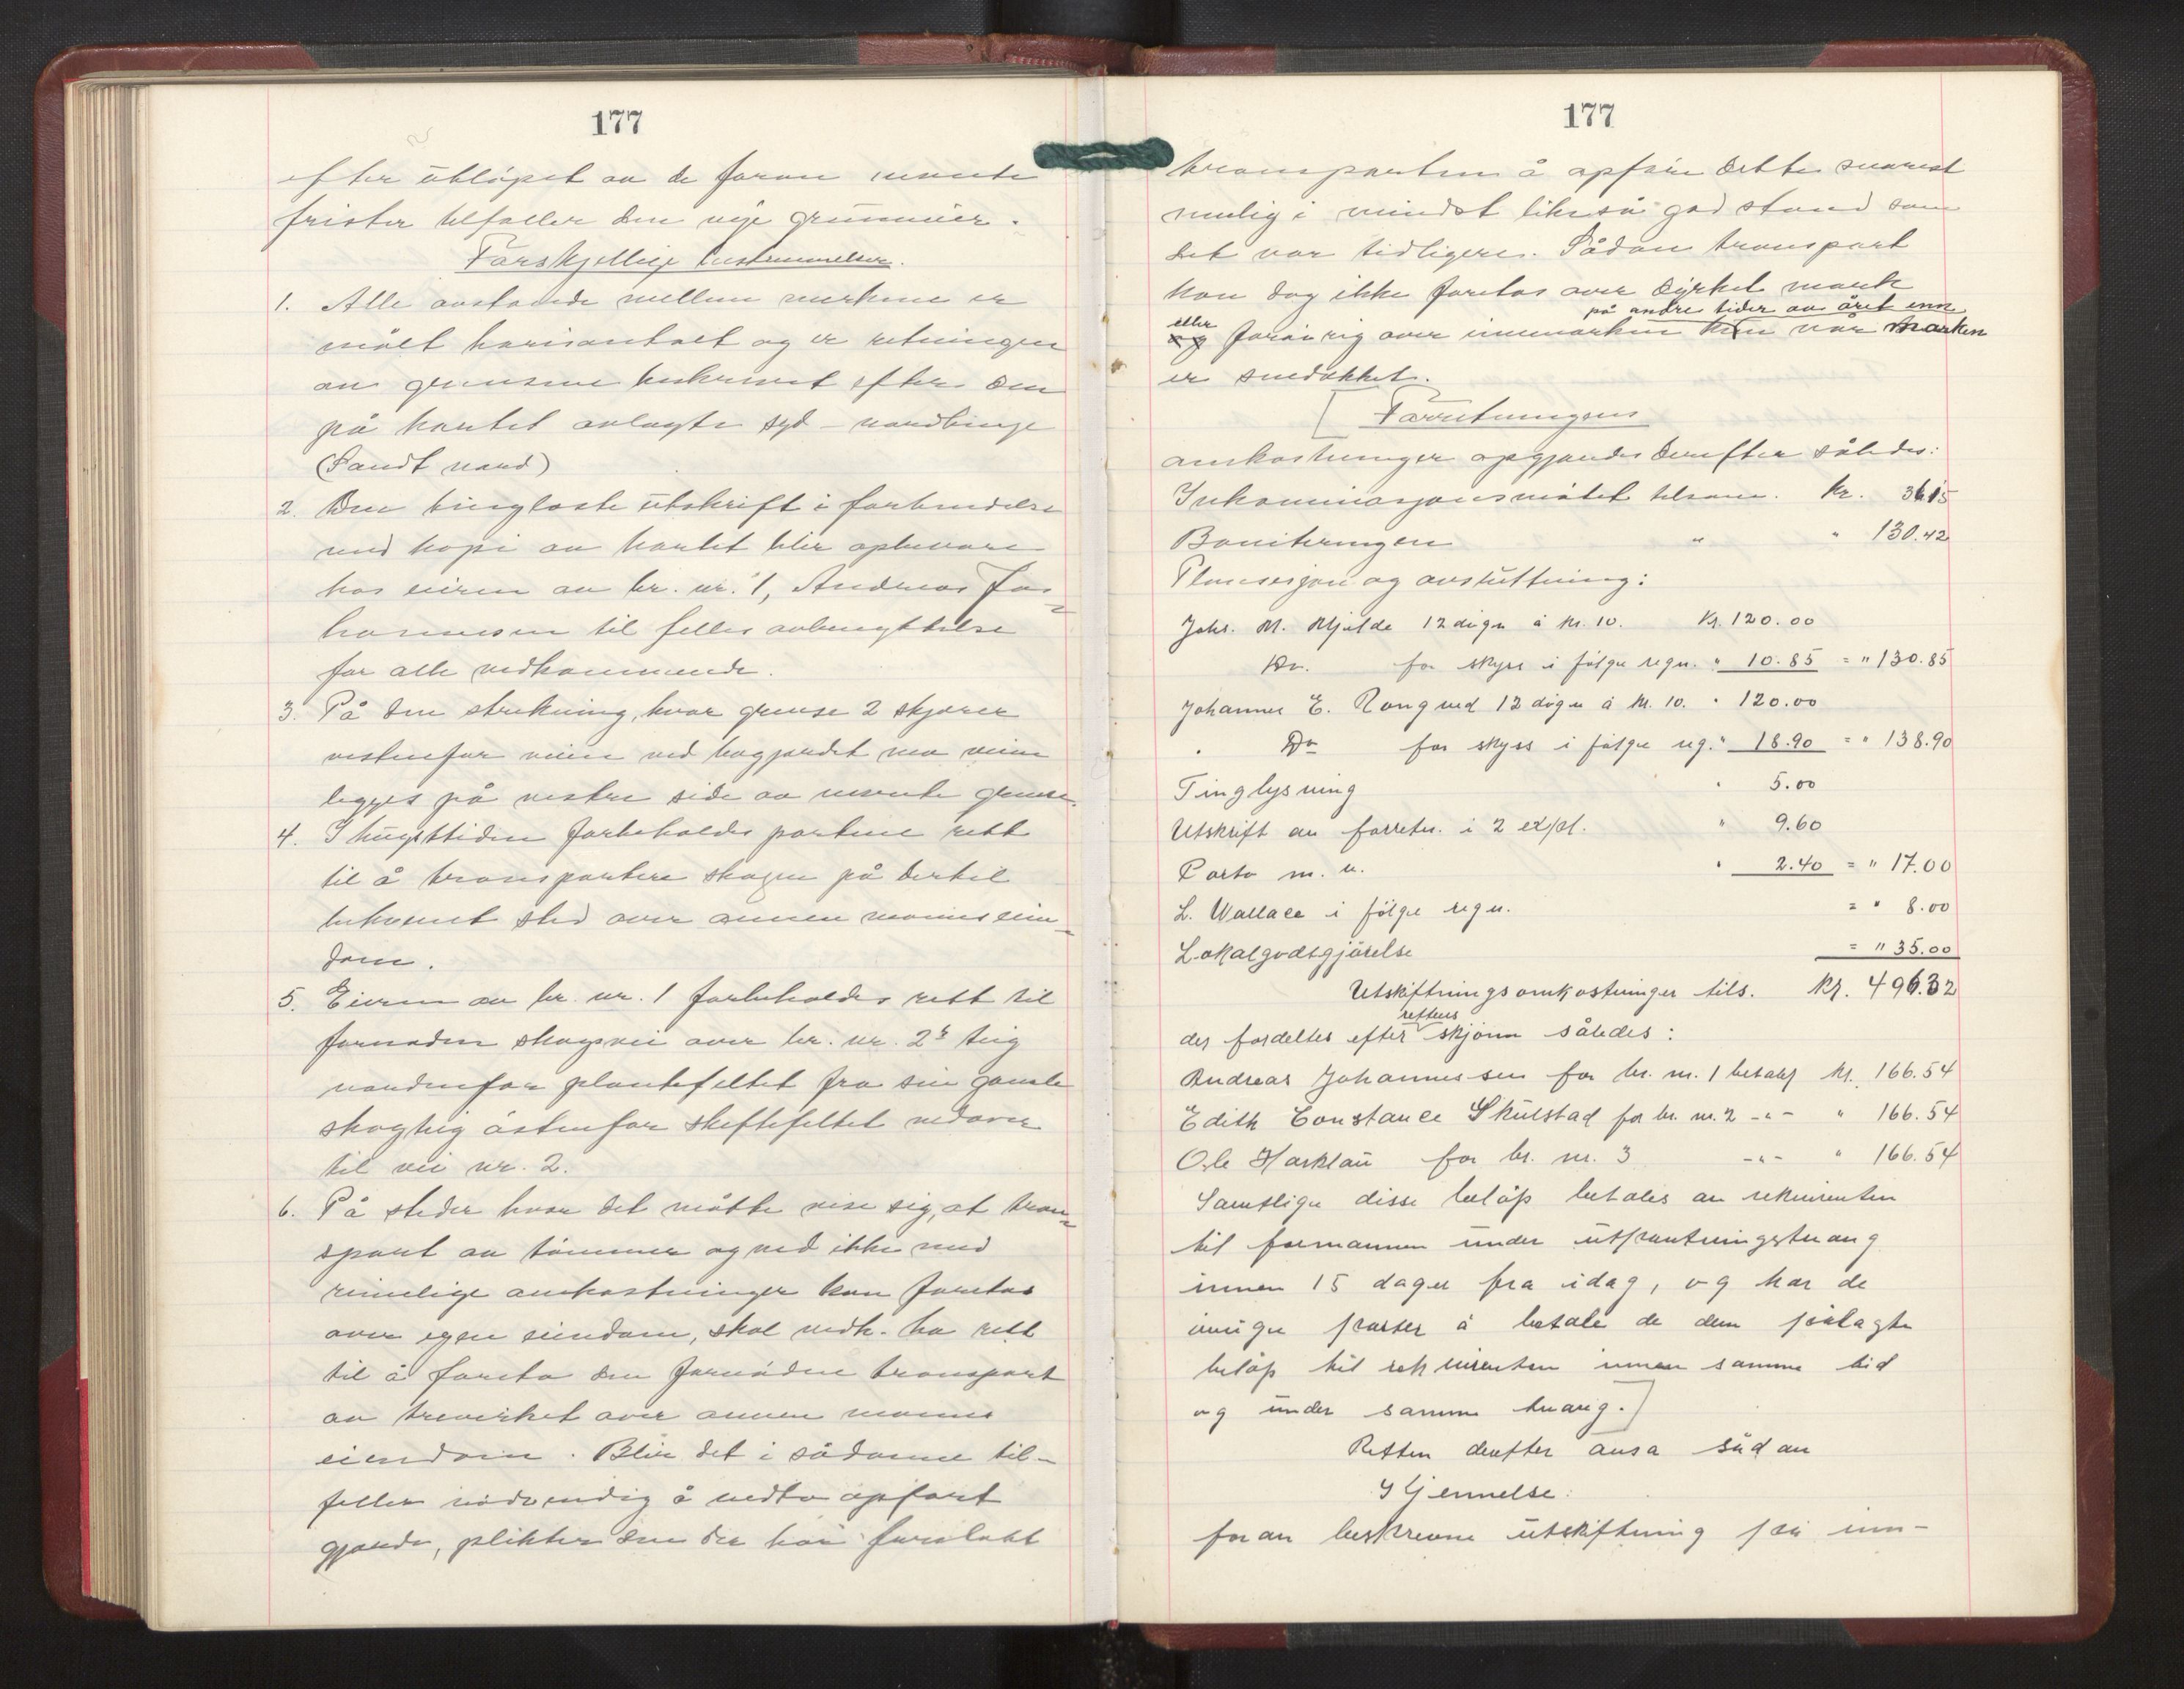 177
efter utløpet av de foran nevnte
frister tilfaller den nye grunneier.
Forskjellige bestemmelser.
1. Alle avstande mellem merkene er
målt horisontalt og er retningen
av grensene beskrevet efter den
på kartet avlagte syd - nordlinje
(Sandt nord)
2. Den tinglæste utskrift i forbindelse
med kopi av kartet blir opbevare
hos eieren av br. nr. 1, Andreas Jo-
hannesen til felles avbenyttelse
for alle vedkommende.
3. På den strekning, hvor grense 2 skjærer
vestenfor veien ved bøgjerdet må veien
legges på vestre side av nevnte grense.
4. I hugsttiden forbeholdes partene rett
til å transportere skogen på dertil
bekvemt sted over annen manns eien-
dom.
5. Eieren av br. nr. 1 forbeholdes rett til
fornøden skogsvei over br. nr. 2s teig
nordenfor plantefeltet fra sin gamle
skogteig østenfor skiftefeltet nedover
til vei nr. 2.
6. På steder hvor det måtte vise sig, at tran-
sport av tømmer og ved ikke med
rimelige omkostninger kan foretas
over egen eiendom, skal vedk. ha rett
til å foreta den fornødne transport
av trevirket over annen manns
eiendom. Blir det i sådanne til-
feller nødvendig å nedta opført
gjerde, plikter den der har foretatt
177
transporten å opføre dette snarest
mulig i mindst likeså god stand som
det var tidligere. Sådan transport
kan dog ikke foretas over dyrket mark
på andre tider av året enn
eller
og forøvrig over innmarken når marken
er snedekket.
Forretningens
omkostninger opgjordes derefter således:
Inkaminasjonsmøtet tilsam. Kr. 36.15
Boniteringen " " 130.42
Plansesjon og avslutning:
Johs. M. Mjelde 12 døgn á kr. 10. Kr. 120.00
Do. for skyss i følge regn. " 10.85 = " 130.85
Johannes E. Rongved 12 døgn á kr. 10. " 120.00
" Do for skyss i følge reg. " 18.90 = " 138.90
Tinglysning " 5.00
Utskrift av forretn. i 2 expl. " 9.60
Porto m. v. " 2.40 = " 17.00
L. Wallace i følge regn. = " 8.00
Lokalgodtgjørelse = " 35.00
Utskiftningsomkostninger tils. Kr. 496.32
rettens
der fordeltes efter skjønn således:
Andreas Johannessen for br. nr. 1 betaler kr. 166.54
Edith Constance Skulstad for br. nr. 2 -"- " 166.54
Ole Harklau for br. nr. 3 -"- " 166.54
Samtlige disse beløp betales av rekvirenten
til formannen under utpantningstvang
innen 15 dager fra idag, og har de
øvrige parter å betale de dem pålagte
beløp til rekvirenten innen samme tid
og under samme tvang.
Retten derefter avsa sådan
Kjennelse:
foran beskrevne utskiftning på inn-